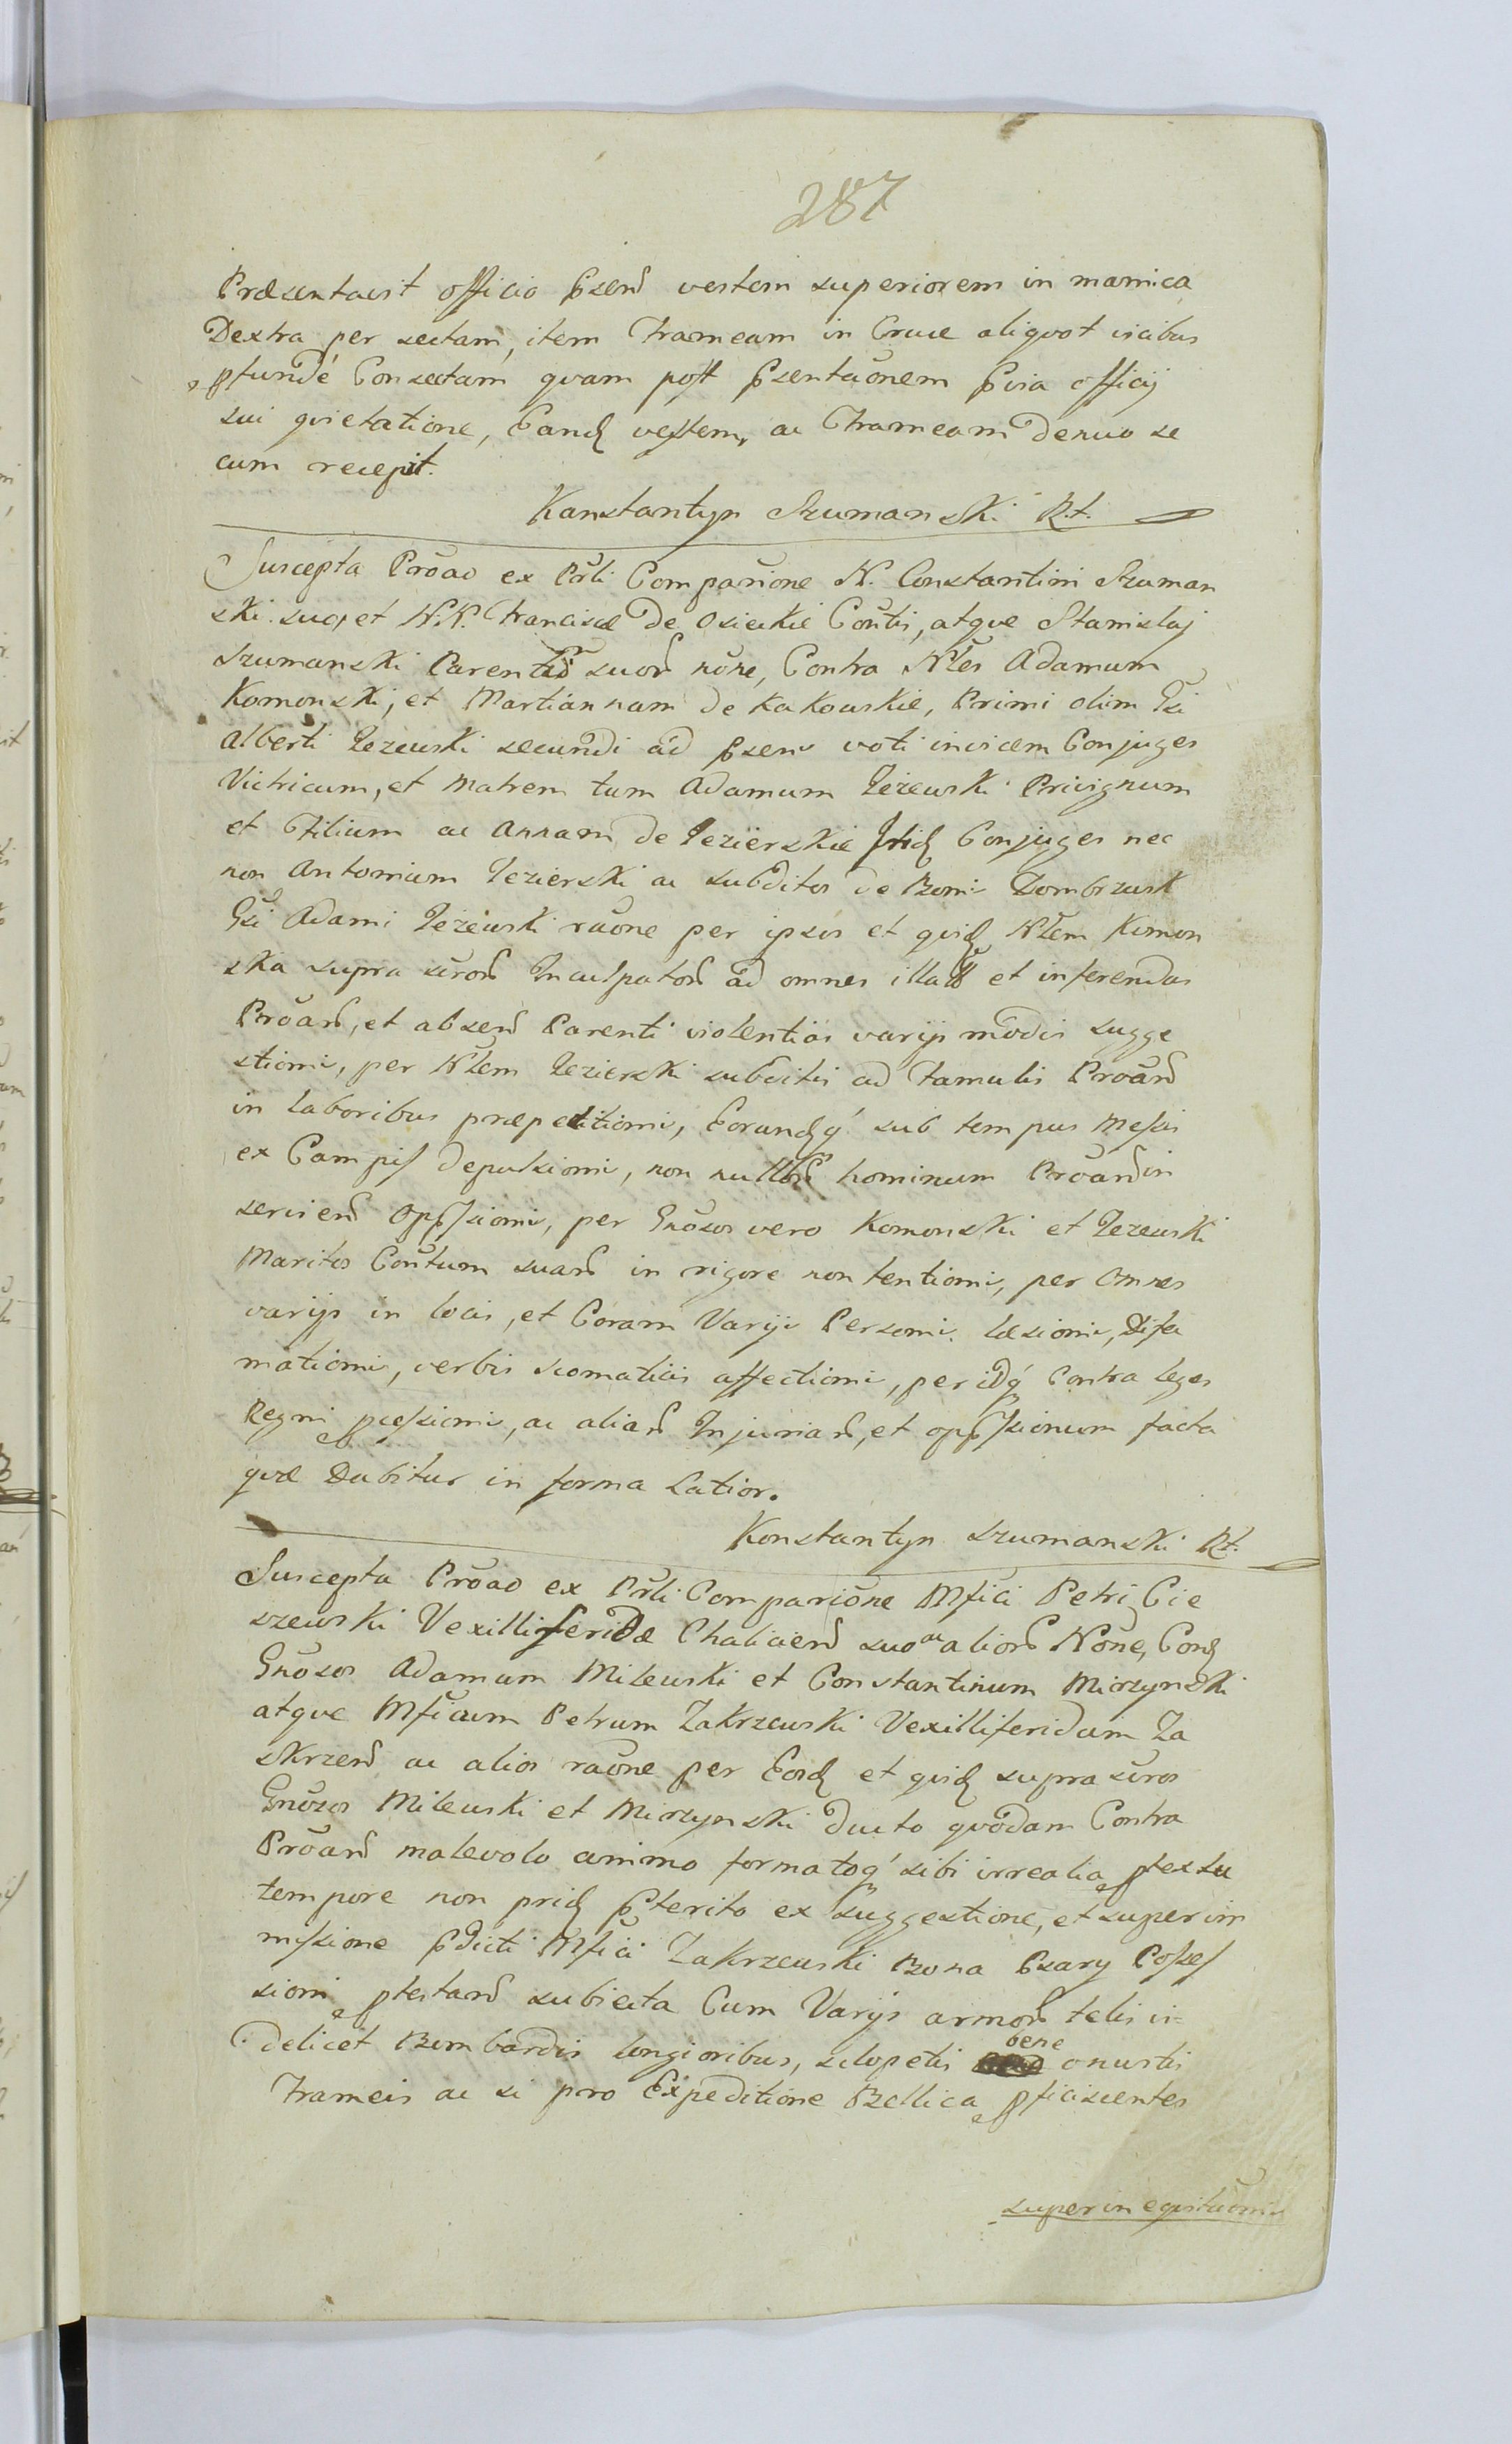 287
Præsentavit officio pzend vestem superiorem in manica
Dextra per sectam, item Frameam in Cruce aliqvot vicibus
pfundé Consectam qvam post pzentaõnem pvia officij
sui qvietatione, Eand vestem, ac Frameam denuo se
cum recepit.
Konstantyn Szumanski Rt.
Suscepta Prõao ex Prli Comparione N. Constantini Szuman
ski suo, et N.N. Franciscæ De Osieckie Contis, atqve Stanislaj
Szumanski Parentũ suoR nõne, Contra Nles Adamum
Komonski, et Mariánnam de Kakowskie, Primi olim Gsi
Alberti Jezewski secundi ad pzens voti invicem Conjuges
Victricum, et Matrem tum Adamum Jeżewski Privignum
et Filium ac Annam de Jezierskie Itid Conjuges nec
non Antonium Jezierski ac subditos de Boni Dombrzusk
Gsi Adami Jeżewski raõne per ipsos et qvid Nlem Komon
ska supra scroR InculpatoR ad omnes illatas et inferendas
ProanR, et absend Parenti violentias varijs modis sugge
stioni, per Nlem Jezierski subditis ad Famulis Proand
in laboribus præpeditioni, Eorundq sub tempus Messis
ex Campis depulsioni, non nulloR hominum Proand in
serviend oppssioni, per Gnosos vero Komonski et Jezewski
Maritos Contum suaR in rigore non tentioni, per Omnes
varijs in locis, et Coram Varijs Personis læsioni, Difa
mationi, verbis scomaticis affectioni, per idq Contra leges
Regni pcessioni, ac aliaR InjuriaR, et oppssionum facta
qvæ Dabitur in forma Latior.
Konstantyn Szumanski Rt.
Suscepta Prõao ex Prli Comparione Mfici Petri Cie
szewski Vexilliferidæ Chaliciend suo ac alioR Nõne, Cond
Gnosos Adamum Milewski et Constantinum Mirzynski
atqve Mficum Petrum Zakrzewski Vexilliferidam Za
skrzend ac alios raõne per Eosd et qvid supra scros
Gnosos Milewski et Mirzynski ducto qvodam Contra
Proand malevolo animo formatoq sibi irreali a ptextu
tempore non prid pterito ex Suggestione, et superim
missione pdicti Mfici Zakrzewski Bona Psary Posses
sioni ptestand subiecta Cum Varijs armoR telis vi=
delicet Bombardis longioribus, sclopetis bene onustis
Frameis ac si pro Expeditione Bellica pficiscentes
superin eqvitaõnis